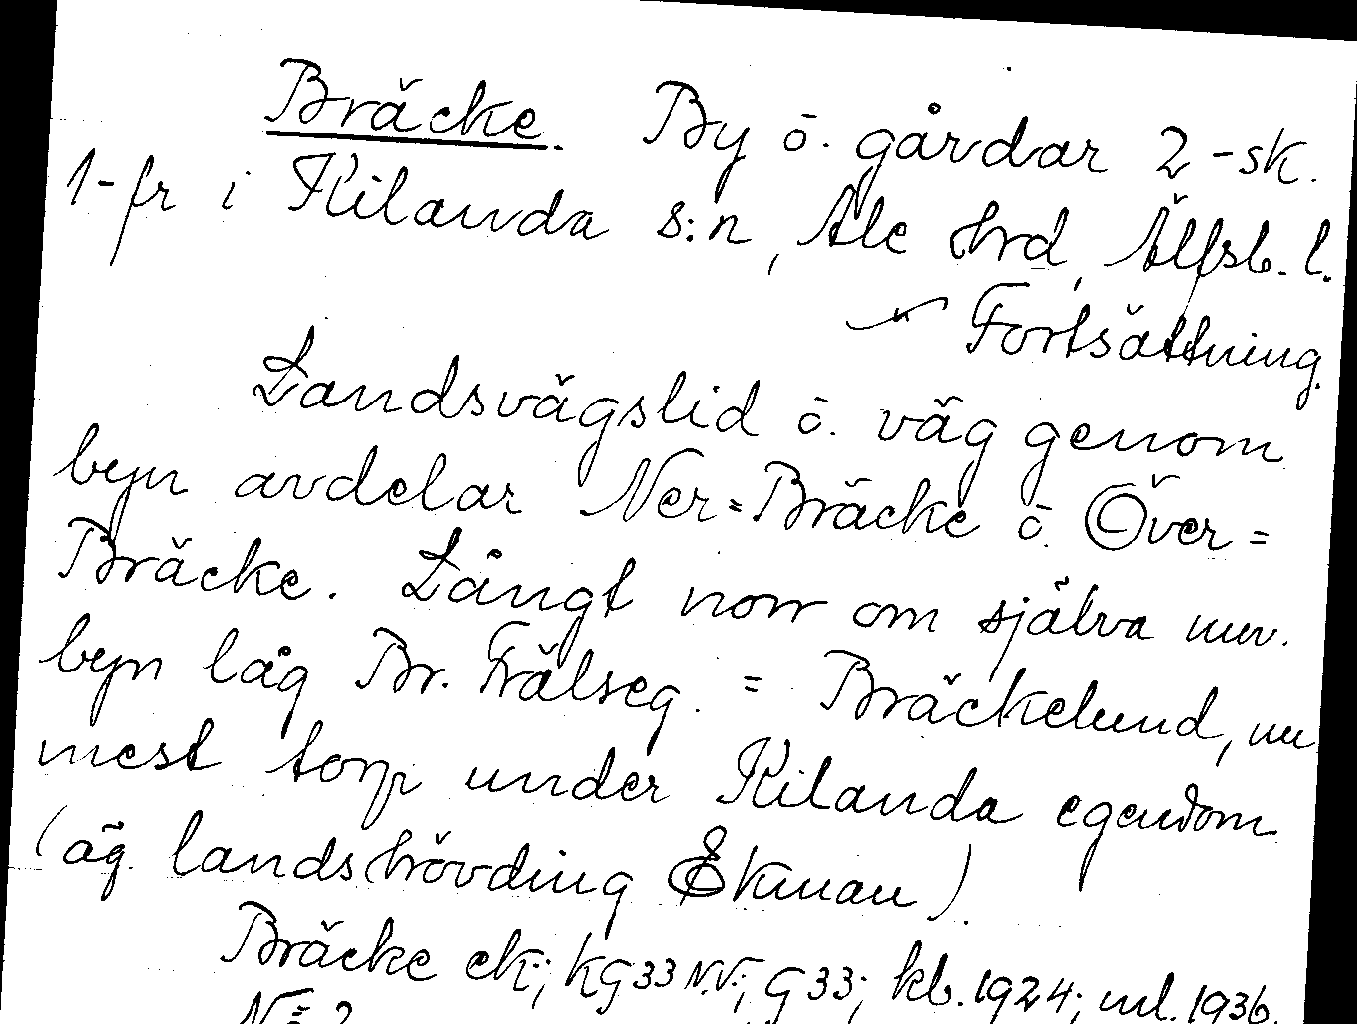 Bräcke. By o. gårdar 2-sk.
1-fr i Kilanda s:n, Ale hrd, Älfsb. l.
Fortsättning.
Landsvägslid o. väg genom
byn avdelar Ner=Bräcke o. Över=
Bräcke. Långt norr om själva nuv.
byn låg Br. Frälseg. = Bräckelund, nu
mest torp under Kilanda egendom
(äg. landshövding Ekman).
Bräcke ek.; kg 33 N.V.; g 33; kb. 1924; ml. 1936.